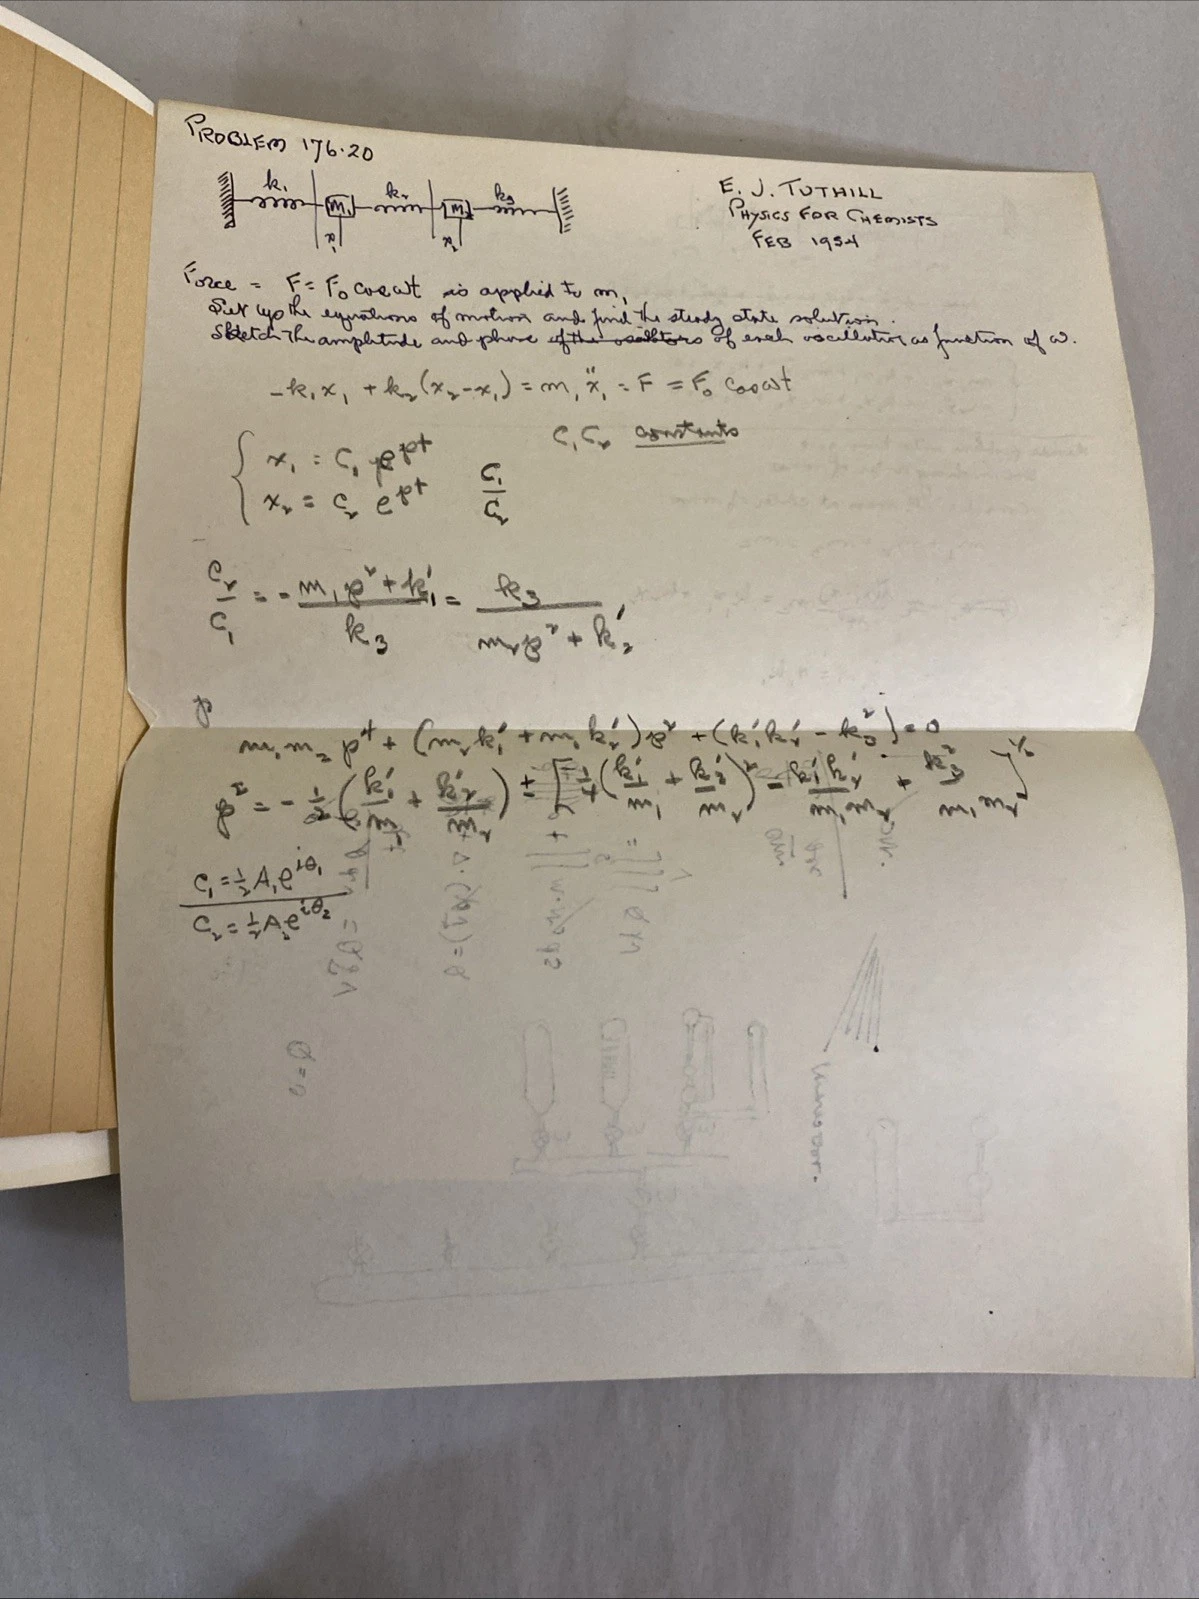 PROBLEM 176.20
k₁ m₁ k₂ m₂ k₃
x₁ x₂
E. J. TUTHILL
PHYSICS FOR CHEMISTS
FEB 1954
Force = F = F₀ cos ωt is applied to m,
Set up the equations of motion and find the steady state solution.
Sketch the amplitude and phase of the oscillators of each oscillator as function of ω.
-k₁x₁ + k₂(x₂-x₁) = m₁ẍ₁ = F = F₀ cos ωt
C₁C₂ constants
x₁ = C₁ e^pt
x₂ = C₂ e^pt C₁/C₂
C₂/C₁ = - (m₁p² + k₁')/k₃ = k₃/(m₂p² + k₂')
p
m₁m₂p⁴ + (m₂k₁' + m₁k₂')p² + (k₁'k₂' - k₃²) = 0
p² = - 1/2 (k₁'/m₁ + k₂'/m₂) ± [1/4 (k₁'/m₁ + k₂'/m₂)² - k₁'k₂'/m₁m₂ + k₃²/m₁m₂]^1/2
C₁ = ½A₁e^iθ₁
C₂ = ½A₂e^iθ₂